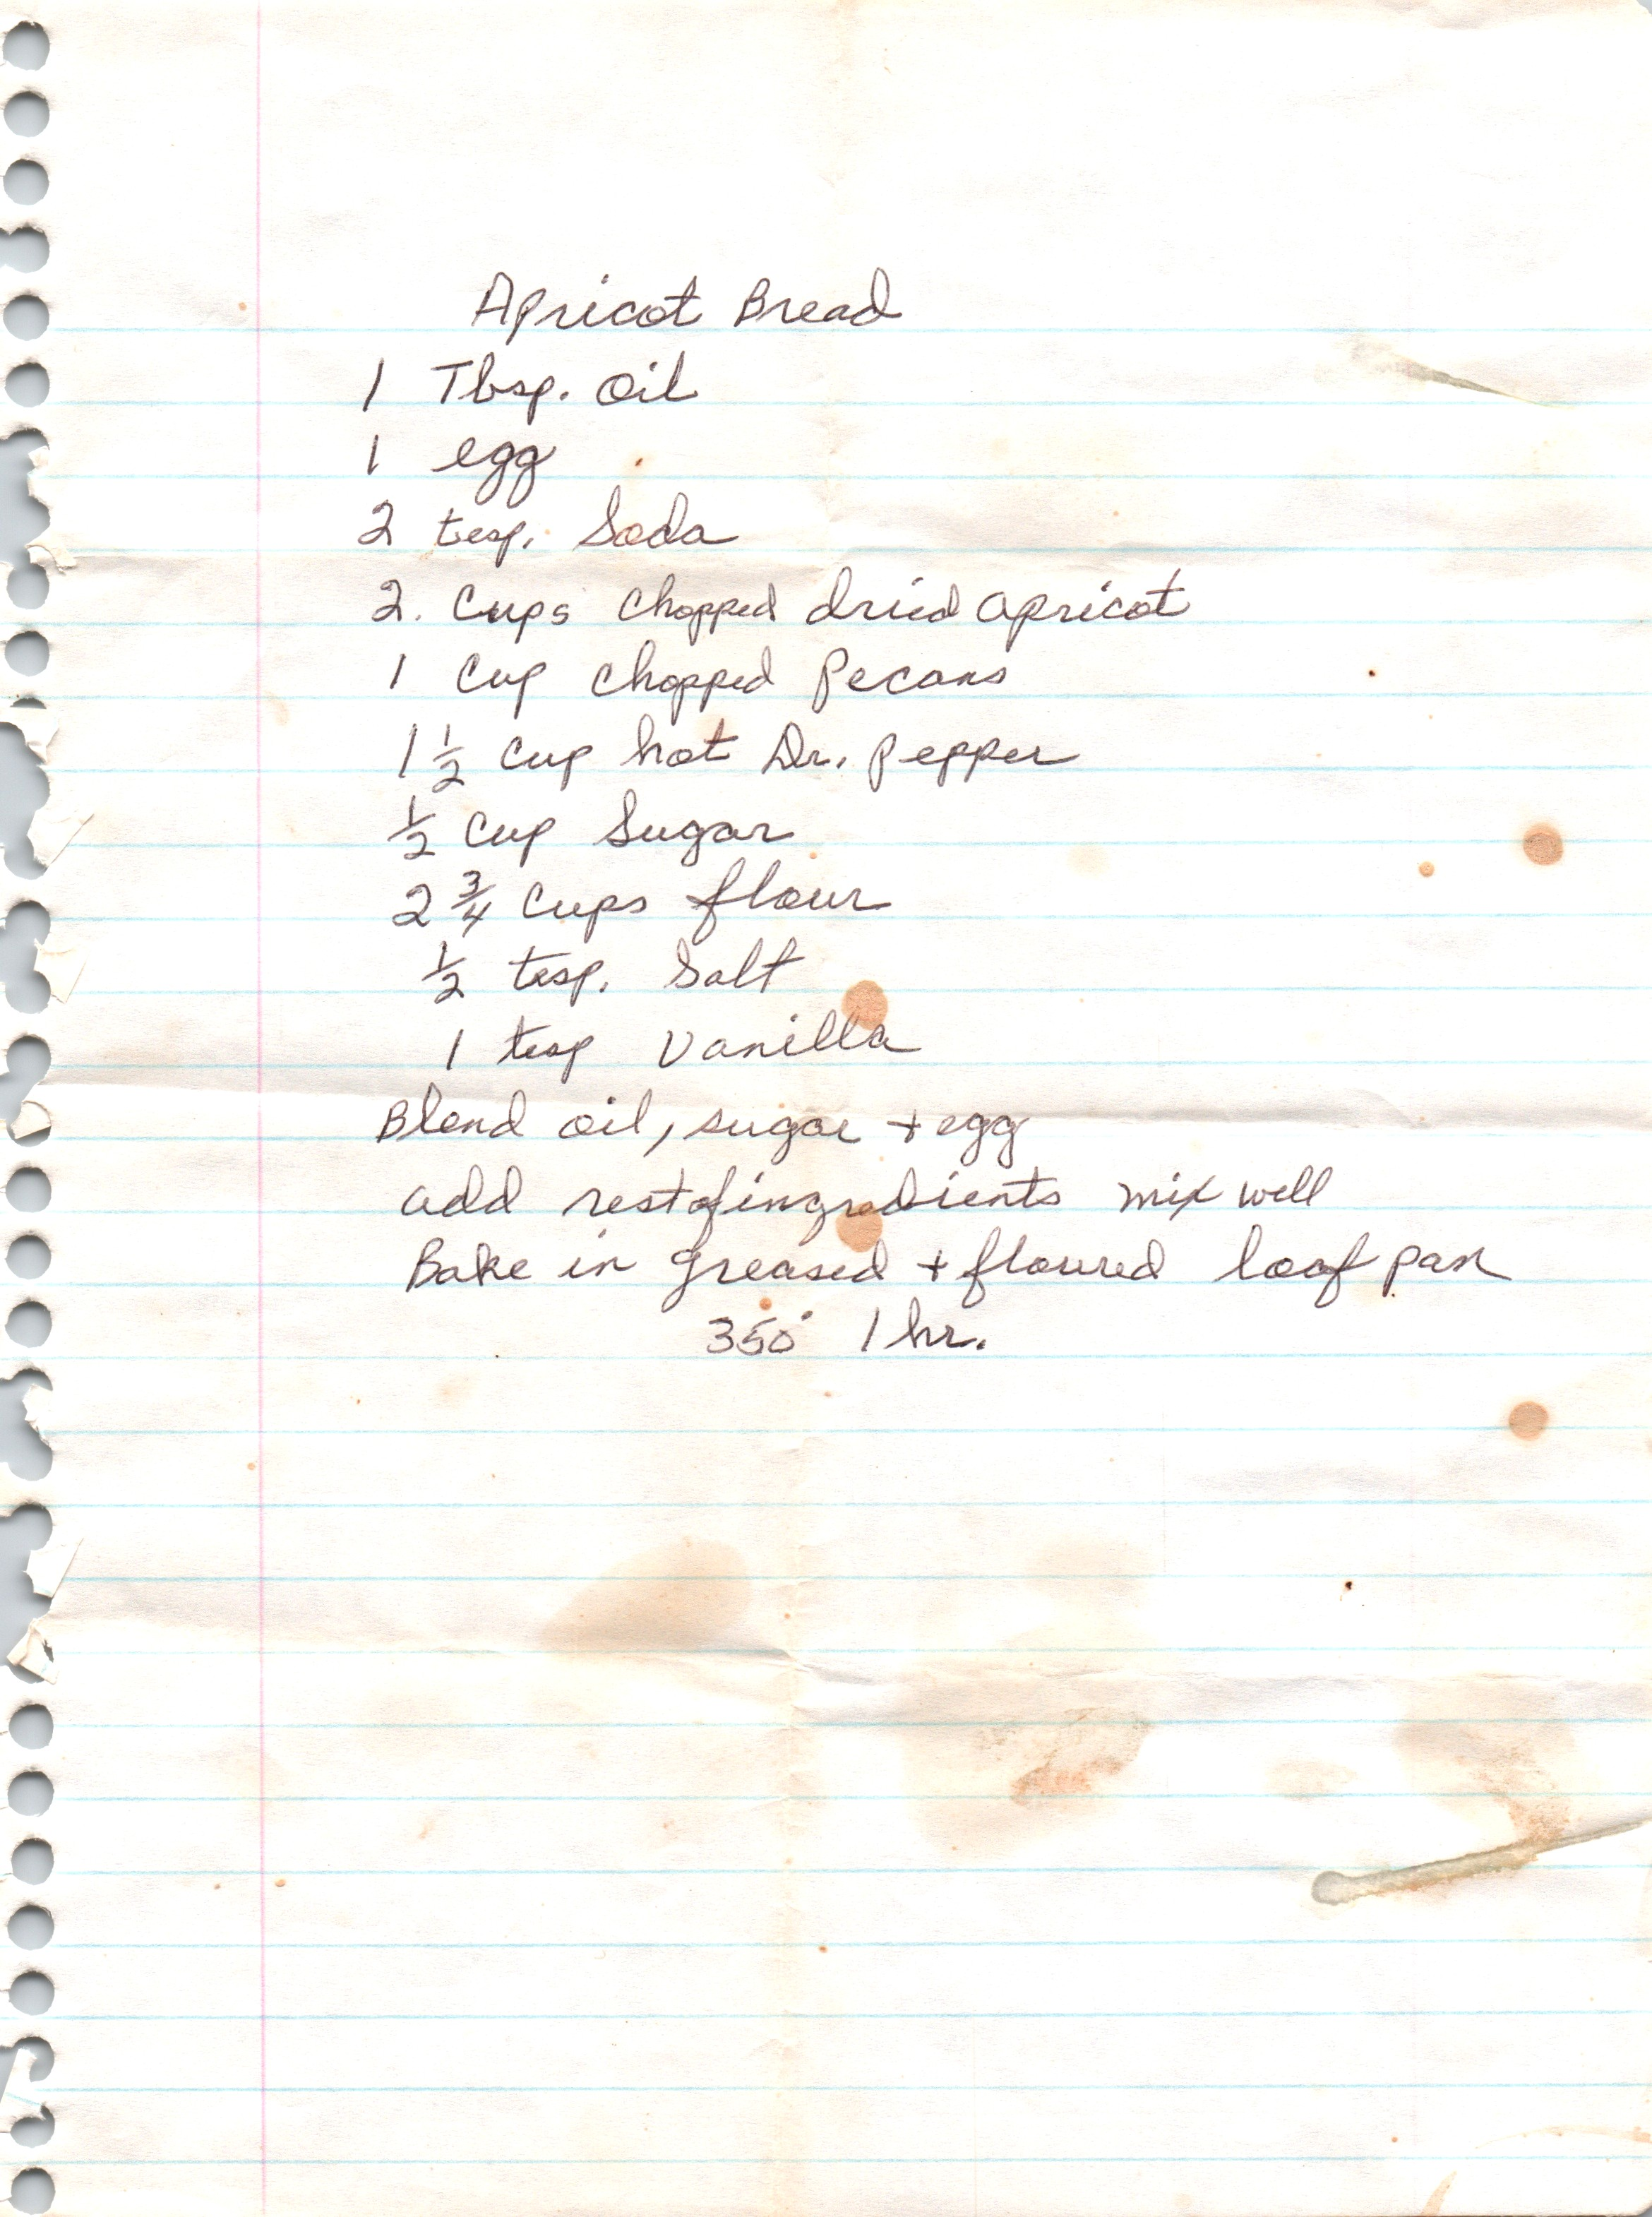 Apricot Bread
1 Tbsp. Oil
1 egg
2 tesp. Soda
2. Cups Chopped dried apricot
1 Cup Chopped Pecans
1 1/2 Cup hot Dr. Pepper
1/2 Cup Sugar
2 3/4 Cups flour
1/2 tesp. Salt
1 tesp Vanilla
Blend oil, sugar + egg
add rest of ingredients mix well
Bake in greased + floured loaf pan
350° 1 hr.